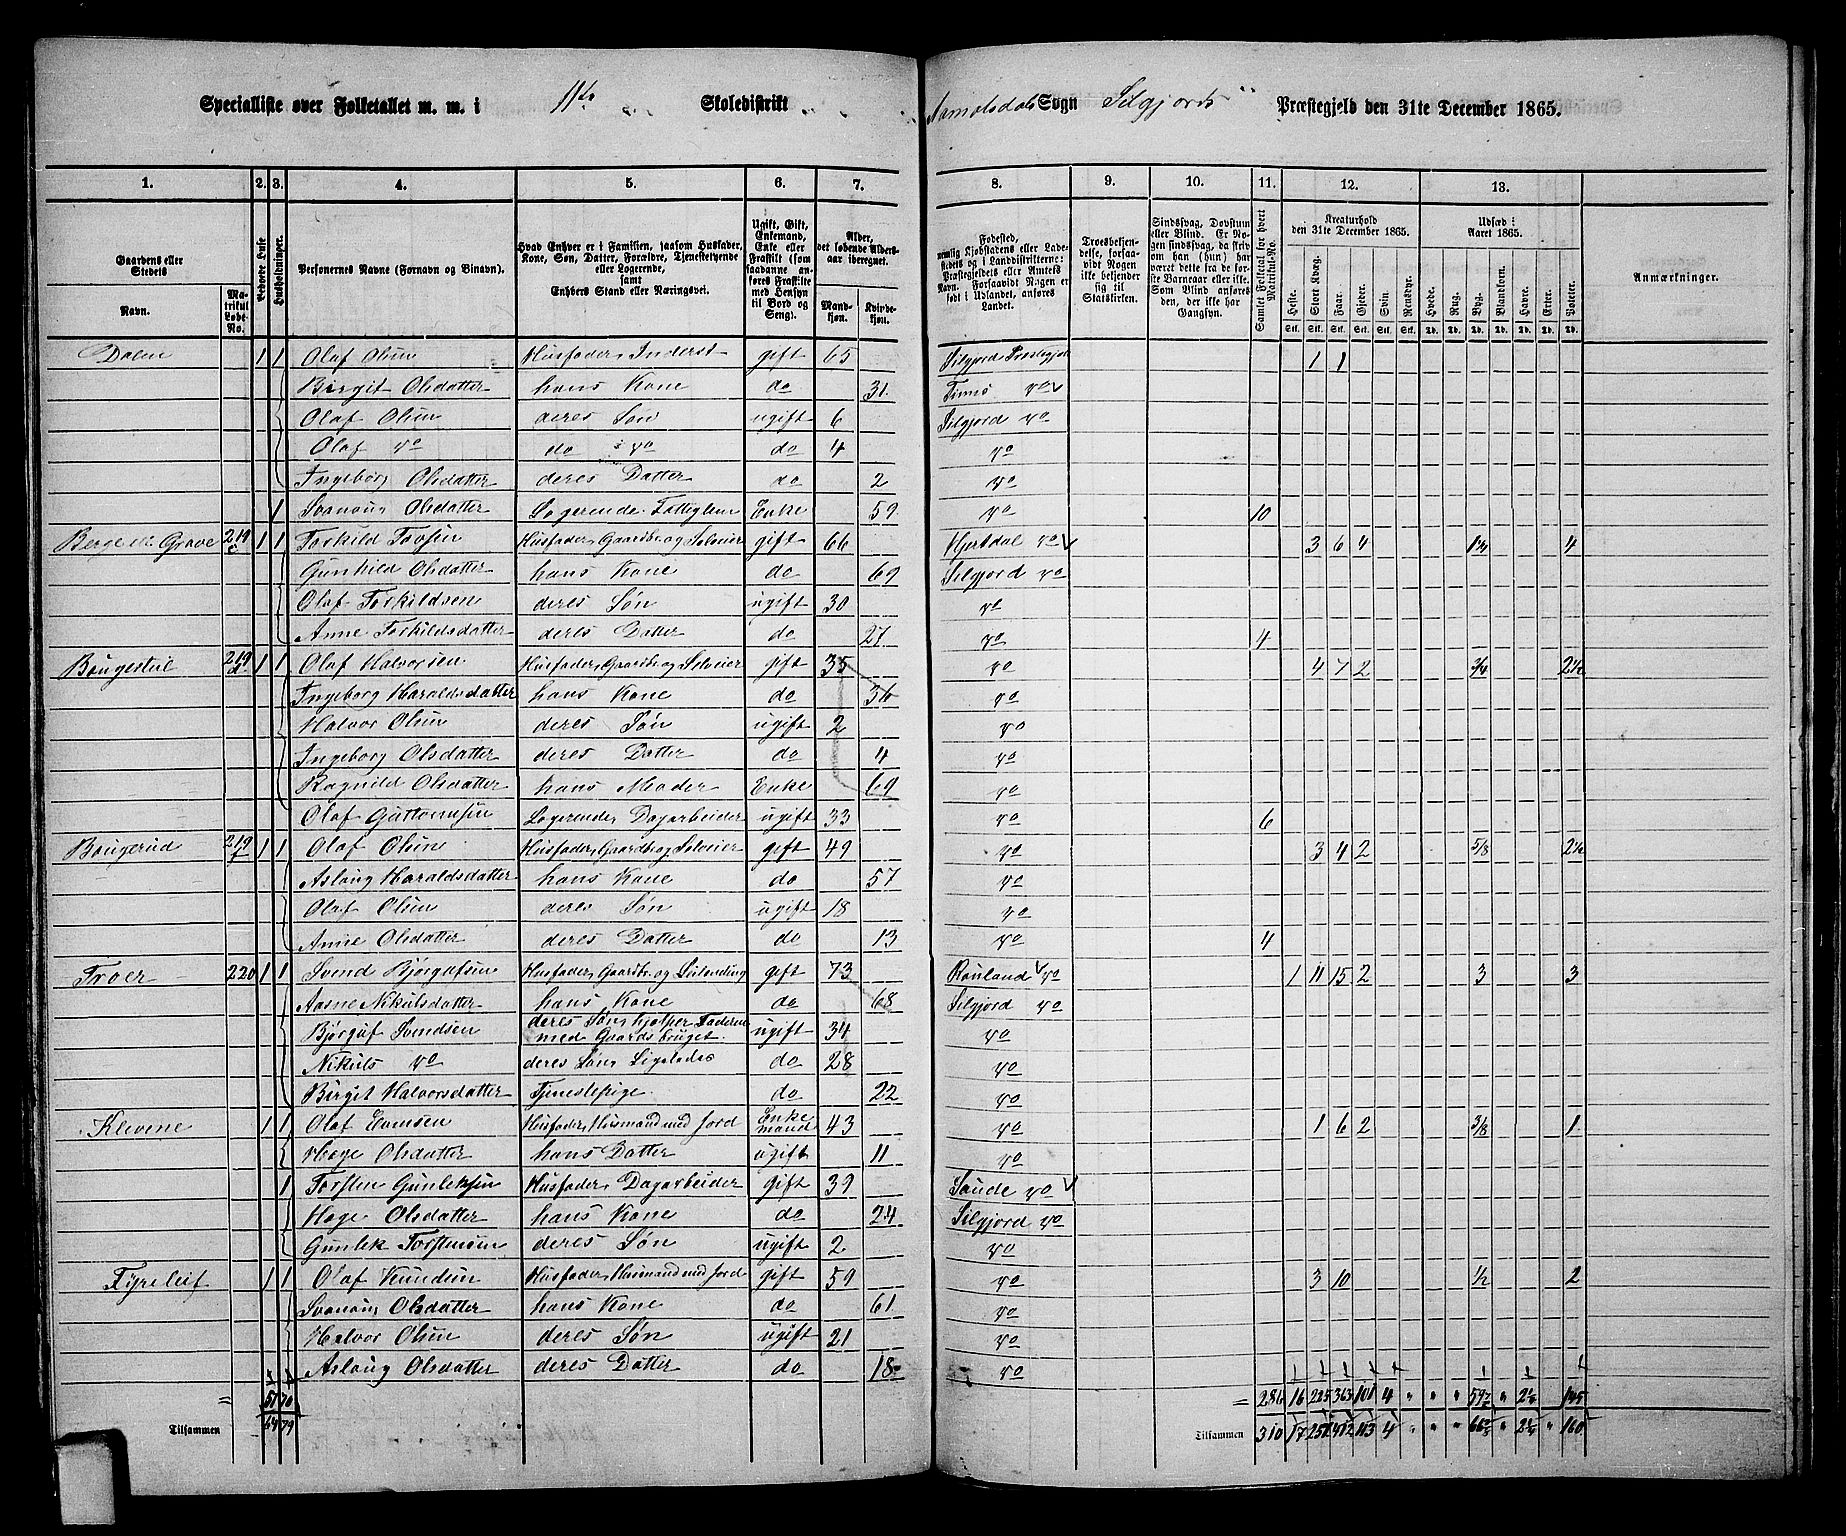 Specialliste over Folketallet m. m. i 11te Skoledistrikt Sogn Silgjords Præstegjeld den 31te December 1865.
1. 2. 3. 4. 5. 6. 7. 8. 9. 10. 11. 12. 13.
Gaardens eller Stedets Navn. Matrikul Løbe-No. Beboede Huse Husholdninger. Personernes Navne (Fornavn og Binavn). Hvad Enhver er i Familien, saasom Husfader, Kone, Søn, Datter, Forældre, Tjenestetyende eller Logerende, samt Enhvers Stand eller Næringsvei. Ugift, Gift, Enkemand, Enke eller Fraskilt (som saadanne anføres Fraskilte med Hensyn til Bord og Seng). Alder, det løbende Aldersaar iberegnet. Mandkjøn. Kvindekjøn. Anmærkninger.
Kreaturhold den 31te December 1865. Heste. Stort Kvæg. Faar. Gjeder. Svin. Rensdyr. Udsæd i Aaret 1865. Hvede. Rug. Byg. Blandkorn. Havre. Erter. Poteter.
Dalen 1 1 Olaf Olsen Husfader, Inderst gift 65 Silgjord Præstegjel 1 1
Birgit Olsdatter hans Kone do 31 Tinns do
Olaf Olsen deres Søn ugift 6 Silgjord do
Olaf do do do do 4 do
Ingeborg Olsdatter deres Datter do 2 do
1 Svanaug Olsdatter Logerende, Fattiglem Enke 59 do 10
Berge m. Grave 219 1 1 Torkild Torsen Husfader, Gaardbr. og Selveier gift 66 Hjertdal do 3 6 4 4
Gunhild Olsdatter hans Kone do 69 Silgjord do
Olaf Torkildsen deres Søn ugift 30 do
Anne Torkildsdatter deres Datter do 27 do 4
Baugestul 219 1 1 Olaf Halvorsen Husfader, Gaardbr. og Selveier gift 35 do 4 7 2 3/4 2 1/2
Ingeborg Haraldsdatter hans Kone do 36 do
Halvor Olsen deres Søn ugift 2 do
Ingeborg Olsdatter deres Datter do 4 do
Ragnild Olsdatter hans Moder Enke 69 do
Olaf Guttormsen Logerende, Dagarbeider ugift 33 do 6
Baugerud 219 1 1 Olaf Olsen Husfader, Gaardbr. og Selveier gift 49 do 3 4 2 5/8 2 1/2
Aslaug Haraldsdatter hans Kone do 57 do
Olaf Olsen deres Søn ugift 18 do
Anne Olsdatter deres Datter do 13 do 4
Troer 220 1 1 Svend Bjørgufsen Husfader, Gaardbr. og Leilending gift 73 Rauland do 1 11 15 2 3 3
Aasne Nikulsdatter hans Kone do 68 Silgjord do
Bjørguf Svendsen deres Søn, hjelper Faderen med Gaardsbruget. ugift 34 do
Nikuls do deres Søn, Ligeledes do 28 do
Birgit Halvorsdatter Tjenestepige do 22 do
Klevene 1 1 Olaf Evensen Husfader, Husmand med Jord Enkemand 43 do 1 6 2 3/8 1
Hæge Olsdatter hans Datter ugift 11 do
1 Torsten Gunleksen Husfader, Dagarbeider gift 39 Saude do
Hæge Olsdatter hans Kone do 24 Silgjord do
Gunlek Torstensen deres Søn ugift 2 do
Fyreleif 1 1 Olaf Knudsen Husfader, Husmand med Jord gift 59 do 3 10 1/2 2
Svanaug Olsdatter hans Kone do 61 do
Halvor Olsen deres Søn ugift 21 do
Aslaug Olsdatter deres Datter do 18 do
= 57 70 = 286 16 225 363 101 4
Tilsammen 64 79 Tilsammen 310 17 251 412 113 4 160